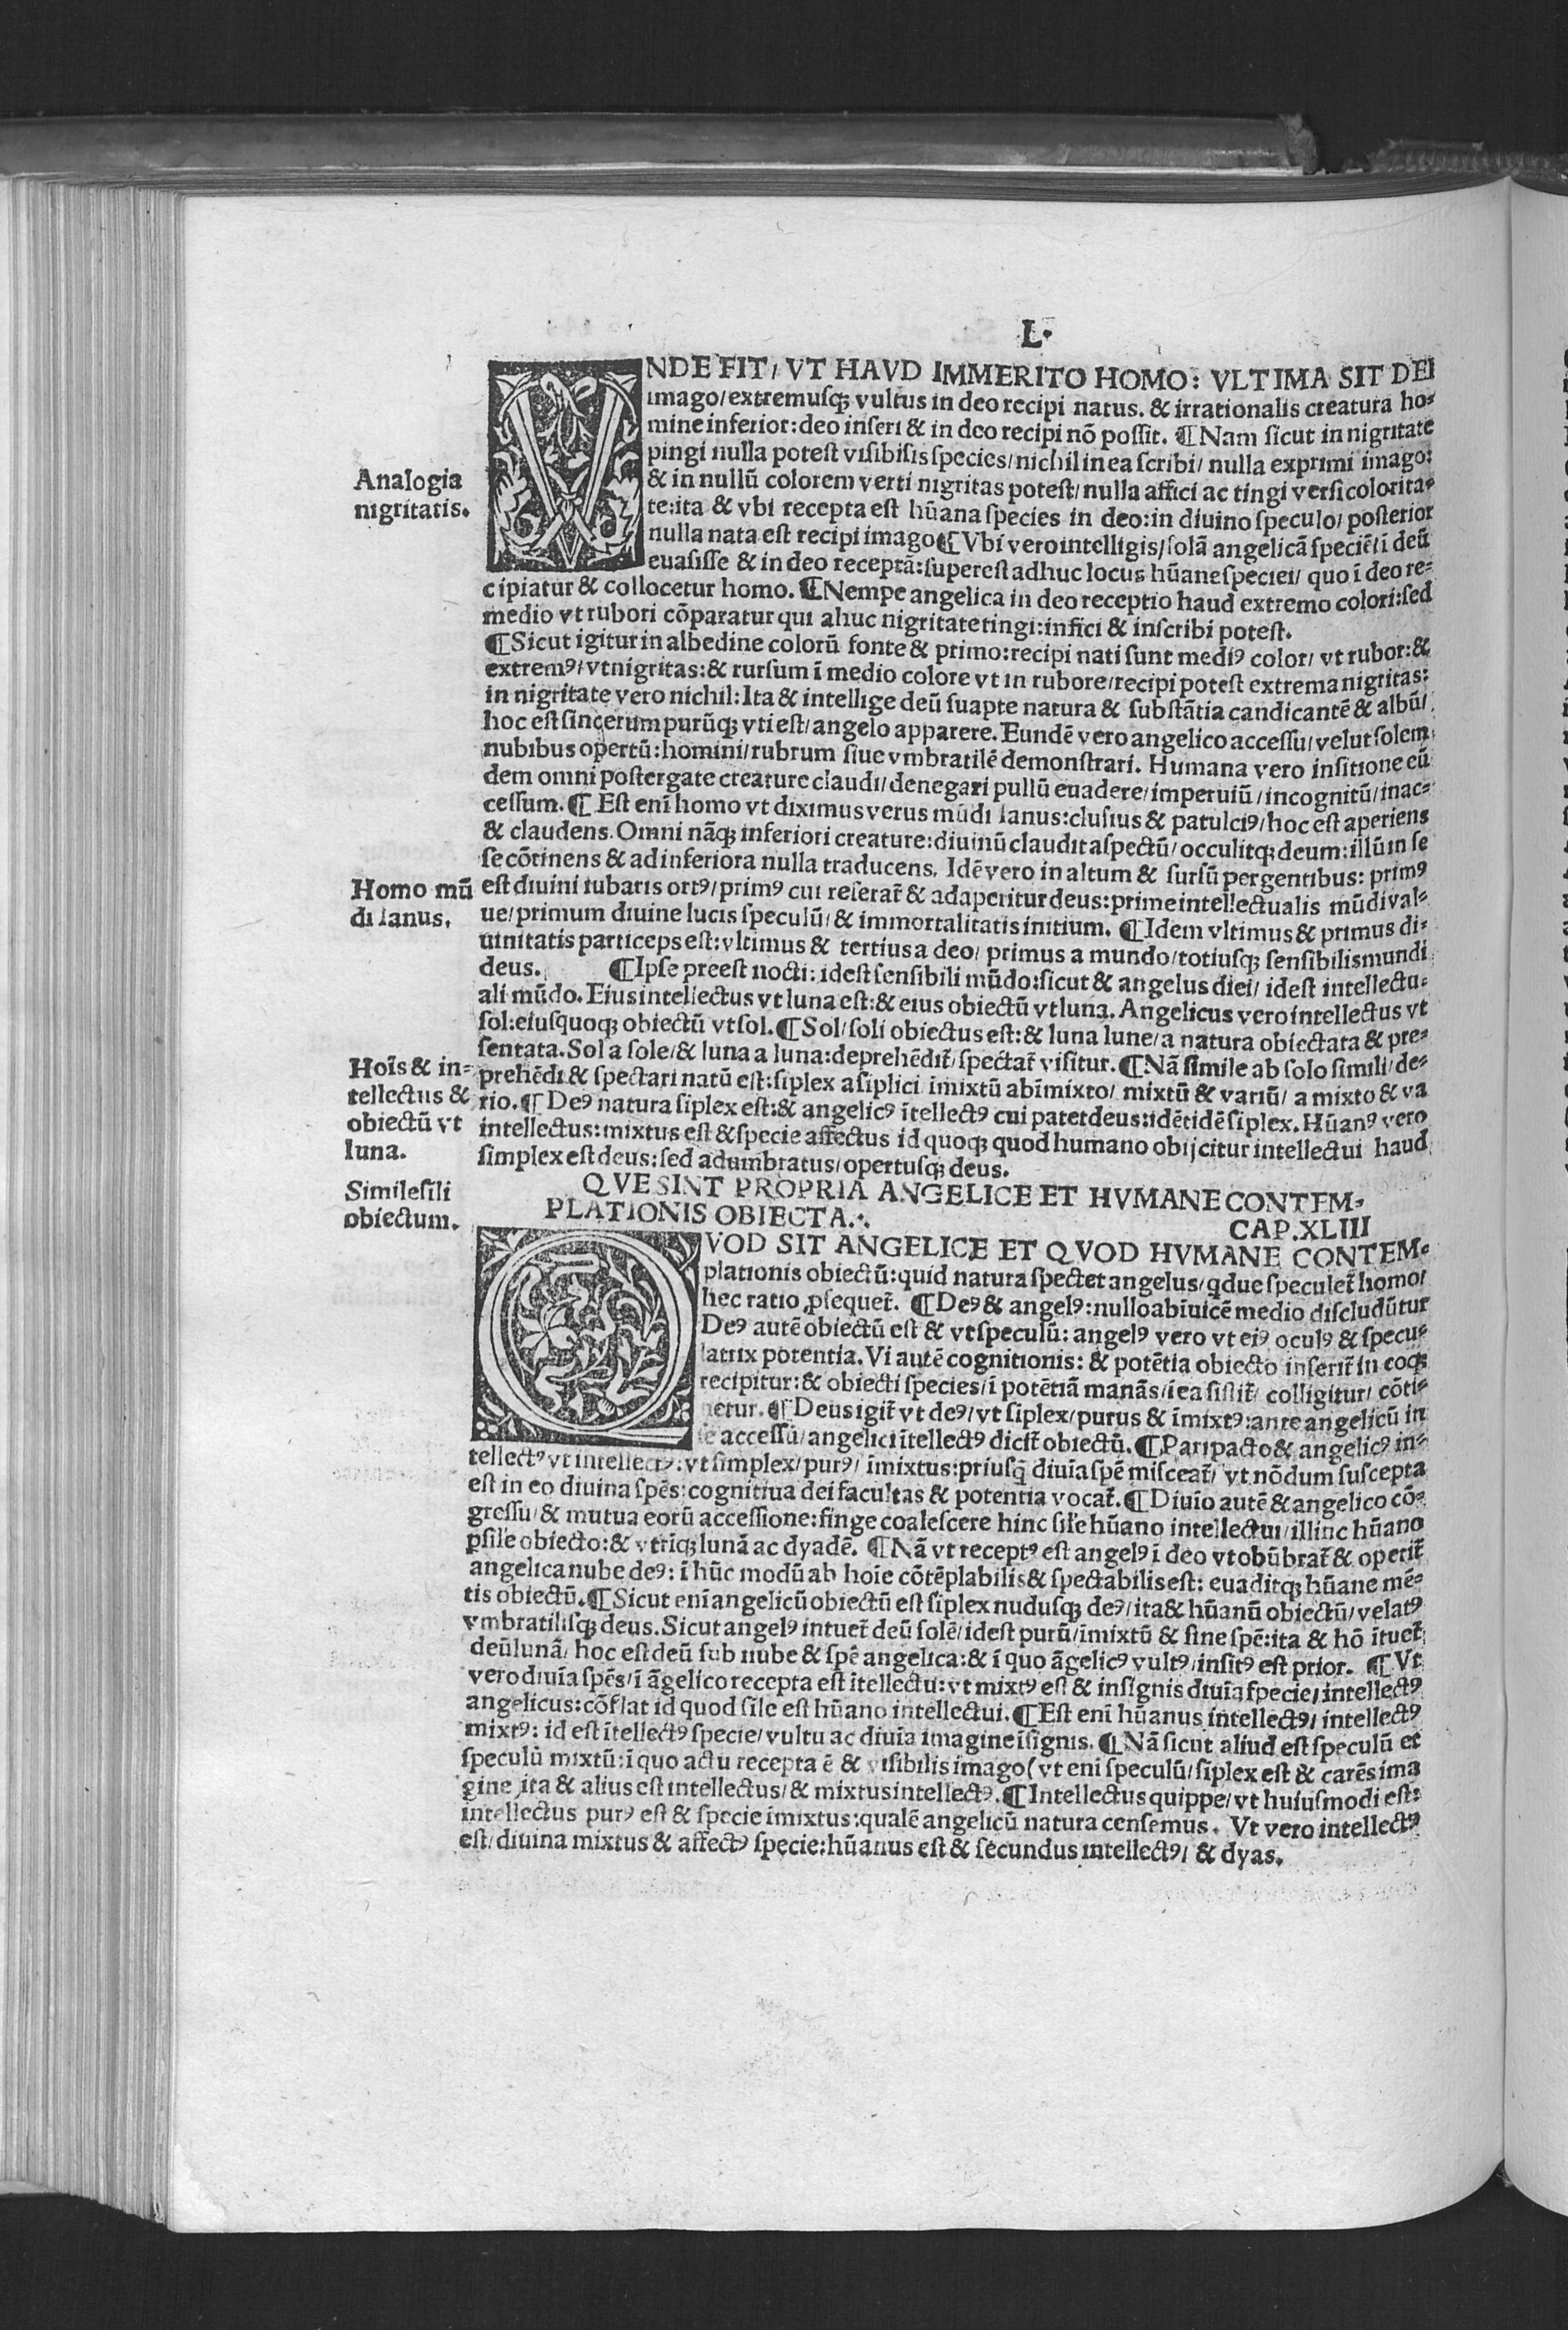 L.
VNDE FIT/ VT HAVD IMMERITO HOMO: VLTIMA SIT DEI
imago/extremusqꝫ vultus in deo recipi natus. & irrationalis creatura ho-
mine inferior: deo inseri & in deo recipi nõ possit. ¶Nam sicut in nigritate
pingi nulla potest visibilis species/nichil in ea scribi/ nulla exprimi imago:
Analogia
nigritatis.
& in nullũ colorem verti nigritas potest/ nulla affici ac tingi versicolorita-
te:ita & vbi recepta est hũana species in deo:in diuino speculo/ posterior
nulla nata est recipi imago¶Vbi vero intelligis/solã angelicã speciẽ ĩ deũ
euasisse & in deo receptã:superest adhuc locus hũane speciei/ quo ĩ deo re-
cipiatur & collocetur homo. ¶Nempe angelica in deo receptio haud extremo colori:sed
medio vt rubori cõparatur qui ahuc nigritate tingi:infici & inscribi potest.
¶Sicut igitur in albedine colorũ fonte & primo:recipi nati sunt mediꝰ color/ vt rubor:&
extremꝰ/vt nigritas:& rursum ĩ medio colore vt in rubore/recipi potest extrema nigritas:
in nigritate vero nichil: Ita & intellige deũ suapte natura & substãtia candicantẽ & albũ/
hoc est sincerum purũqꝫ vti est/ angelo apparere. Eundẽ vero angelico accessu/velut solem
nubibus opertũ:homini/rubrum siue vmbratilẽ demonstrari. Humana vero insitione eũ
dem omni postergate creature claudi/denegari pullũ euadere/imperuiũ/incognitũ/inac-
cessum. ¶Est enĩ homo vt diximus verus mũdi Ianus:clusius & patulciꝰ/hoc est aperiens
& claudens. Omni nãqꝫ inferiori creature:diuinũ claudit aspectũ/occulitqꝫ deum:illũ in se
se cõtinens & ad inferiora nulla traducens. Idẽ vero in altum & sursũ pergentibus: primꝰ
Homo mũ
di Ianus.
est diuini iubaris ortꝰ/primꝰ cui reserat̃ & adaperitur deus:prime intellectualis mũdi val-
ue/primum diuine lucis speculũ/& immortalitatis initium. ¶Idem vltimus & primus di-
uinitatis particeps est:vltimus & tertius a deo/ primus a mundo/totiusqꝫ sensibilis mundi
deus. ¶Ipse preest nocti: idest sensibili mũdo:sicut & angelus diei/ idest intellectu-
ali mũdo. Eius intellectus vt luna est:& eius obiectũ vt luna. Angelicus vero intellectus vt
sol:eiusquoqꝫ obiectũ vt sol. ¶Sol/soli obiectus est:& luna lune/a natura obiectata & pre-
sentata. Sol a sole/& luna a luna:deprehẽdit̃/spectat̃ visitur. ¶Nã simile ab solo simili/de-
Hoĩs & in-
tellectus &
obiectũ vt
luna.
prehẽdi & spectari natũ est:siplex a siplici ĩmixtũ ab ĩmixto/ mixtũ & variũ/ a mixto & va
rio. ¶Deꝰ natura siplex est:& angelicꝰ ĩtellectꝰ cui patet deus:idẽtidẽ siplex. Hũanꝰ vero
intellectus:mixtus est & specie affectus id quoqꝫ quod humano obijcitur intellectui haud
simplex est deus:sed adumbratus/opertusqꝫ deus.
Simile sili
obiectum.
QVE SINT PROPRIA ANGELICE ET HVMANE CONTEM-
PLATIONIS OBIECTA. CAP.XLIII
QVOD SIT ANGELICE ET QVOD HVMANE CONTEM-
plationis obiectũ:quid natura spectet angelus/qdue speculet̃ homo/
hec ratio ꝓsequet̃. ¶Deꝰ & angelꝰ:nullo abĩuicẽ medio discludũtur
Deꝰ autẽ obiectũ est & vt speculũ: angelꝰ vero vt eiꝰ oculꝰ & specu-
latrix potentia. Vi autẽ cognitionis: & potẽtia obiecto inserit̃ in eoqꝫ
recipitur:& obiecti species/ĩ potẽtiã manãs/ĩ ea sistit̃/ colligitur/ cõti-
netur. ¶Deus igit̃ vt deꝰ/vt siplex/purus & ĩmixtꝰ:ante angelicũ in
se accessũ/angelici ĩtellectꝰ dicit̃ obiectũ. ¶Pari pacto & angelicꝰ in-
tellectꝰ vt intellectꝰ: vt simplex/purꝰ/ ĩmixtus:priusq̃ diuĩa spẽ misceat̃/ vt nõdum suscepta
est in eo diuina spẽs:cognitiua dei facultas & potentia vocat̃. ¶Diuĩo autẽ & angelico cõ-
gressu/& mutua eorũ accessione:finge coalescere hinc sile hũano intellectui/illinc hũano
ꝑsile obiecto:& vtrĩqꝫ lunã ac dyadẽ. ¶Nã vt receptꝰ est angelꝰ ĩ deo vt obũbrat̃ & operit̃
angelica nube deꝰ: ĩ hũc modũ ab hoĩe cõtẽplabilis & spectabilis est: euaditqꝫ hũane mẽ-
tis obiectũ. ¶Sicut enĩ angelicũ obiectũ est siplex nudusqꝫ deꝰ/ita & hũanũ obiectũ/velatꝰ
vmbratilisqꝫ deus. Sicut angelꝰ intuet̃ deũ solẽ/idest purũ/ĩmixtũ & sine spẽ:ita & hõ ĩtuet̃
deũ lunã/ hoc est deũ sub nube & spẽ angelica:& ĩ quo ãgelicꝰ vultꝰ/insitꝰ est prior. ¶Vt
vero diuĩa spẽs/ĩ ãgelico recepta est ĩtellectu:vt mixtꝰ est & insignis diuĩa specie/intellectꝰ
angelicus:cõflat id quod sile est hũano intellectui. ¶Est enĩ hũanus intellectꝰ/ intellectꝰ
mixtꝰ: id est ĩtellectꝰ specie/vultu ac diuĩa imagine ĩsignis. ¶Nã sicut aliud est speculũ et
speculũ mixtũ:ĩ quo actu recepta ẽ & visibilis imago (vt eni speculũ/siplex est & carẽs ima
gine)ita & alius est intellectus/& mixtus intellectꝰ. ¶Intellectus quippe/vt huiusmodi est:
intellectus purꝰ est & specie imixtus:qualẽ angelicũ natura censemus. Vt vero intellectꝰ
est/diuina mixtus & affectꝰ specie:hũanus est & secundus intellectꝰ/ & dyas.